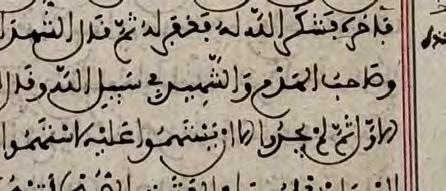 فأخره فشكر الله له فغفر له ثم قال الشهدا
وصاحب الهدم والشهيد في سبيل الله وقال
الاول ثم لم يجدوا الا ان يستهموا عليه لاستهموا